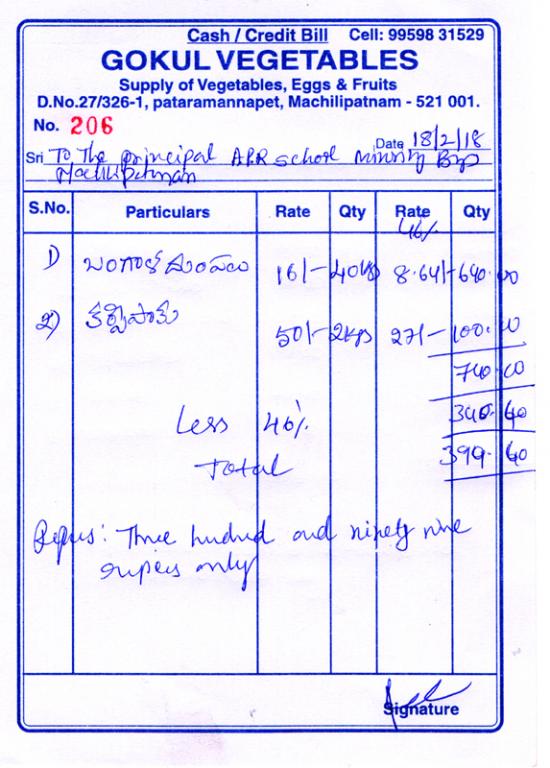 Cash / Credit Bill Cell: 99598 31529
GOKUL VEGETABLES
Supply of Vegetables, Eggs & Fruits
D.No.27/326-1, pataramannapet, Machilipatnam - 521 001.
No. 206
Date 18/2/18
Sri To The principal APR school Minority Boys
Machilipatnam
S.No. Particulars Rate Qty Rate Qty
46%
1) బంగాళదుంపలు 16/- 40kg 8.64/- 640.00
2) కర్వేపాకు 50/- 2kgs 27/- 100.00
740.00
Less 46% 340.40
Total 399.60
Rupees: Three hundred and ninety nine
rupees only
Signature